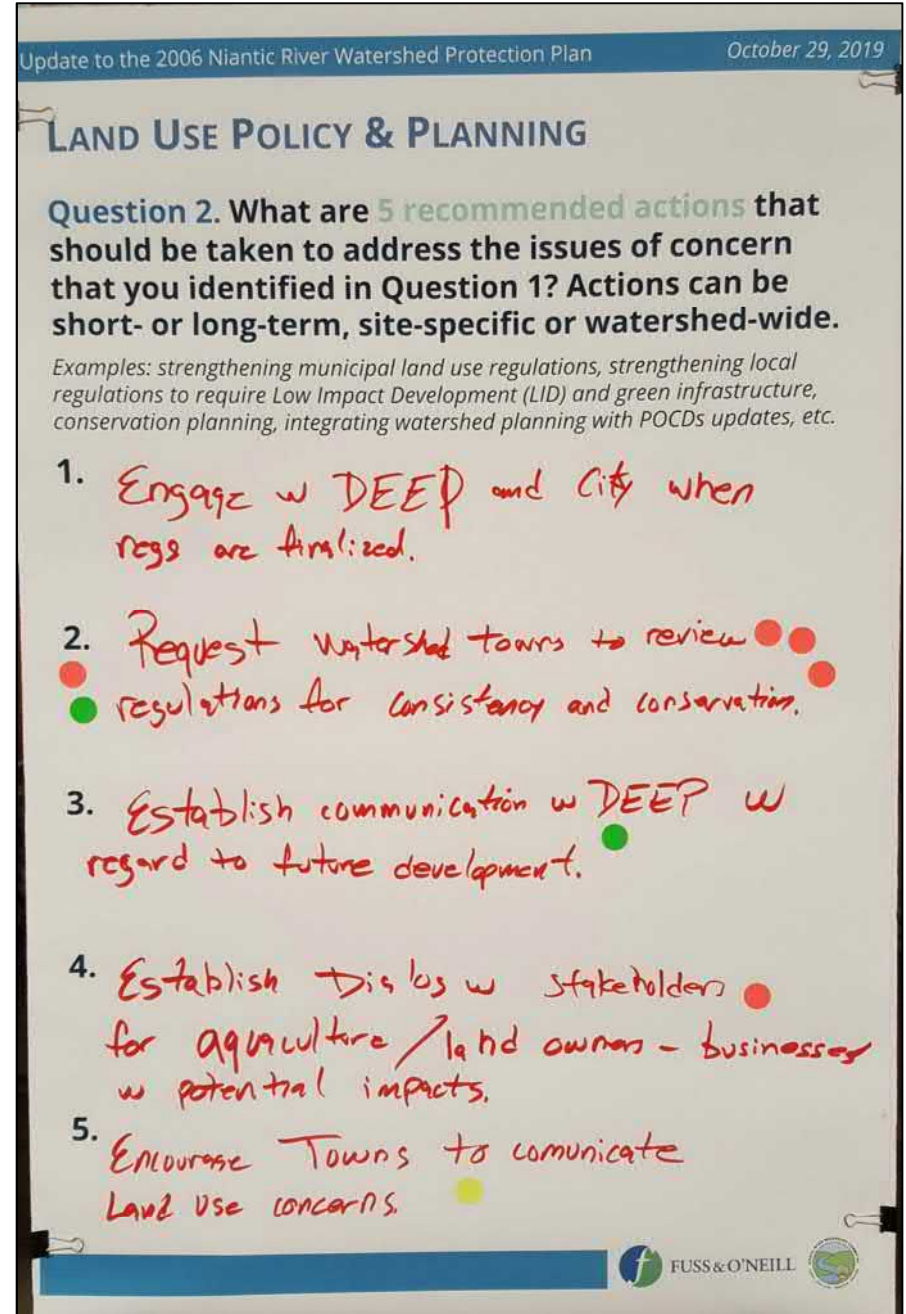 Update to the 2006 Niantic River Watershed Protection Plan October 29, 2019
LAND USE POLICY & PLANNING
Question 2. What are 5 recommended actions that
should be taken to address the issues of concern
that you identified in Question 1? Actions can be
short- or long-term, site-specific or watershed-wide.
Examples: strengthening municipal land use regulations, strengthening local
regulations to require Low Impact Development (LID) and green infrastructure,
conservation planning, integrating watershed planning with POCDs updates, etc.
1. Engage w DEEP and City when
regs are finalized.
2. Request watershed towns to review
regulations for consistency and conservation.
3. Establish communication w DEEP w
regard to future development.
4. Establish Dialog w stakeholders
for aquaculture / land owners - businesses
w potential impacts.
5. Encourage Towns to comunicate
Land Use concerns.
FUSS & O'NEILL